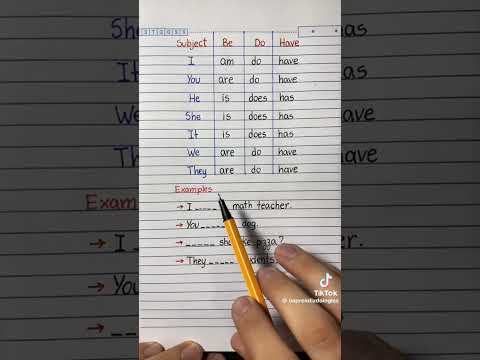 Subject Be Do Have
I am do have
You are do have
He is does has
She is does has
It is does has
We are do have
They are do have
Examples
→ I _____ math teacher.
→ You _____ dog.
→ _____ pizza?
→ They _____
TikTok